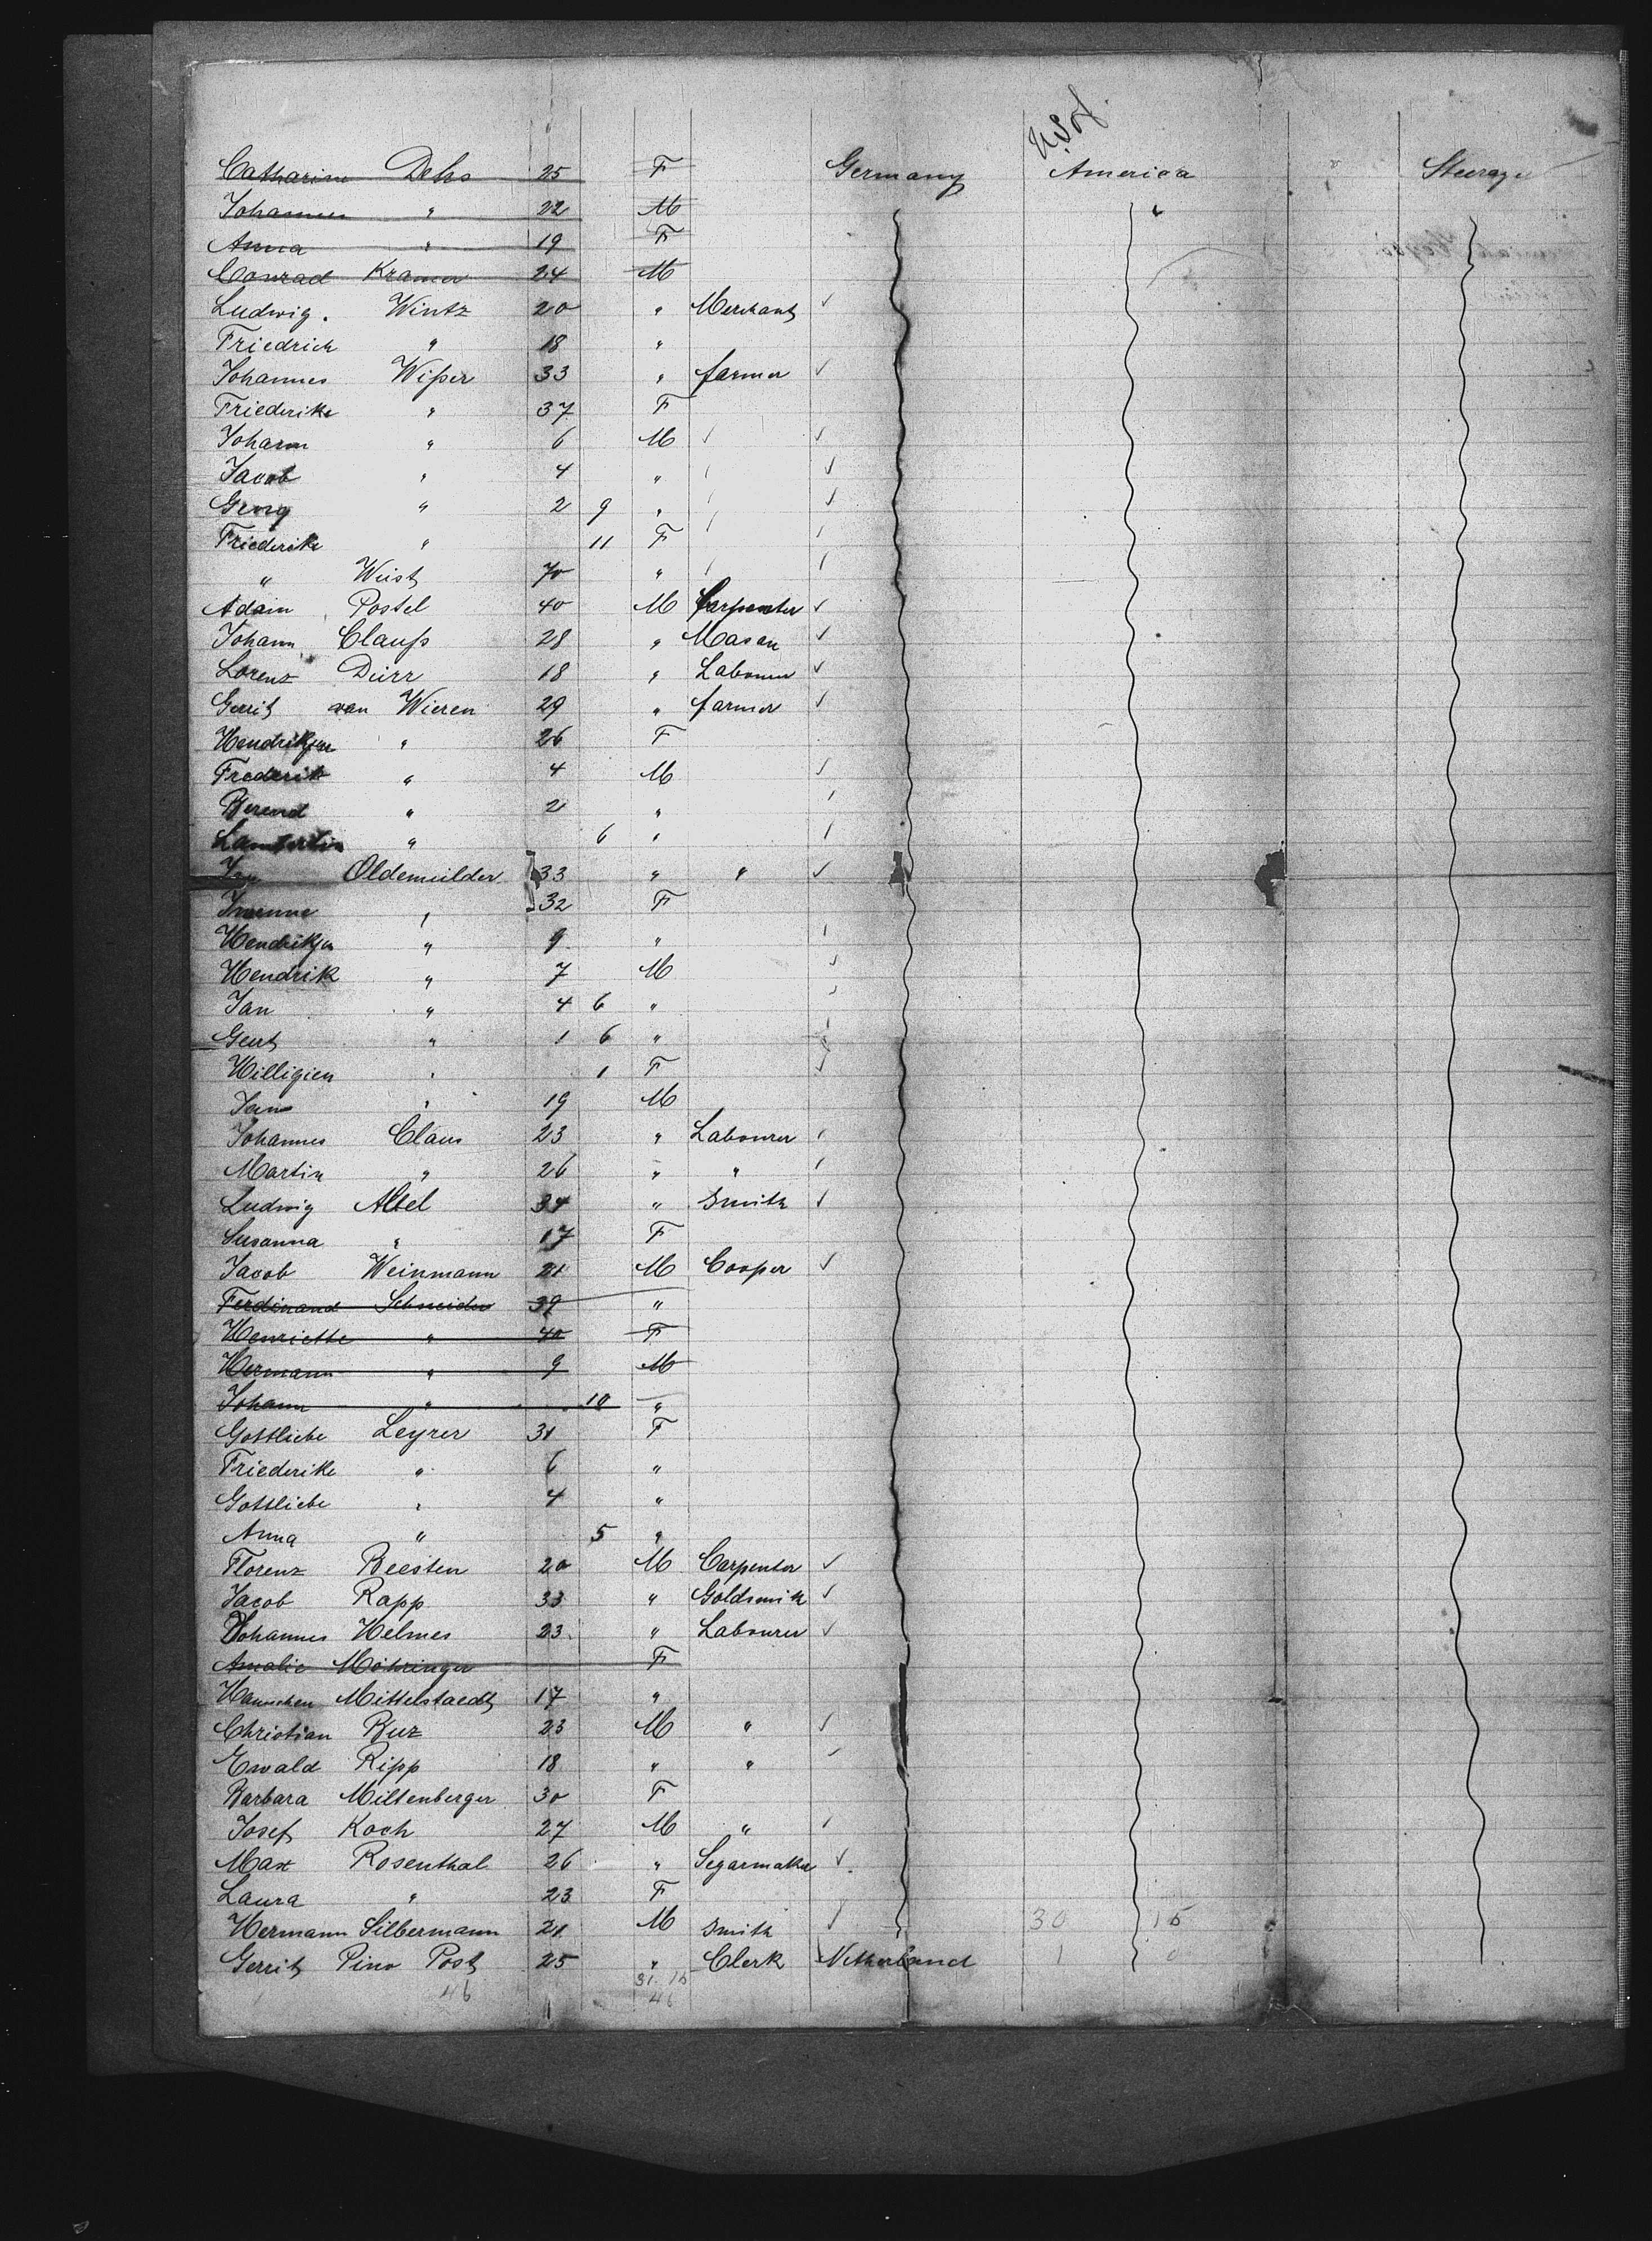 U.S. of
Catharine Dehs 25 F Germany America Steerage
Johannes " 22 M
Anna " 19 F
Conrad Kramer 24 M
Ludwig. Wintz 20 " Merchant ✓
Friedrich " 18 "
Johannes Wißer 33 " farmer ✓
Friederike " 37 F
Johann " 6 M ✓
Jacob " 4 " ✓
Georg " 2 9 " ✓
Friederike " 11 F
" Wüst 70 "
Adam Postel 40 M Carpenter ✓
Johann Clauß 28 " Mason ✓
Lorenz Dürr 18 " Labourer ✓
Gerrit van Wieren 29 " farmer ✓
Hendrikjen " 26 F
Frederik " 4 M ✓
Berend " 2 "
" 6 "
Jan Oldemulder 33 " " ✓
" 32 F
Hendrikjen " 9 "
Hendrik " 7 M
Jan " 4 6 "
Geert " 1 6 "
Hilligien " 1 F ✓
Jan " 19 M
Johannes Claus 23 " Labourer
Martin " 26 " "
Ludwig Abel 34 " Smith ✓
Susanna " 17 F
Jacob Weinmann 21 M Cooper ✓
Ferdinand Schneider 39 "
Henriette " 40 F
Hermann " 9 M
Johann " 10 "
Gottliebe Leyrer 31 F
Friederike " 6 "
Gottliebe " 4 "
Anna " 5 "
Florenz Beesten 20 M Carpenter ✓
Jacob Rapp 33 " Goldsmith ✓
Johannes Helmes 23 " Labourer ✓
Amalie Möhringer F
Hannchen Mittelstaedt 17 "
Christian Buz 23 M " ✓
Ewald Ripp 18 " " ✓
Barbara Miltenberger 30 F
Josef Koch 27 M "
Max Rosenthal 26 " Segarmaker ✓
Laura " 23 F
Hermann Silbermann 21 M Smith ✓ 30 15
Gerrit Pino Post 25 " Clerk Netherland 1 0
31. 15
46 46